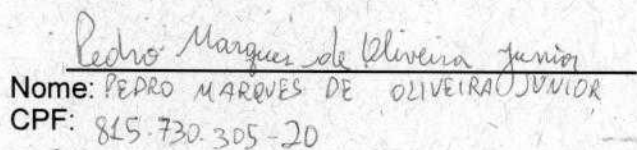 Pedro Marques de Oliveira Junior
Nome: PEDRO MARQUES DE OLIVEIRA JUNIOR
CPF: 815.730.305-20